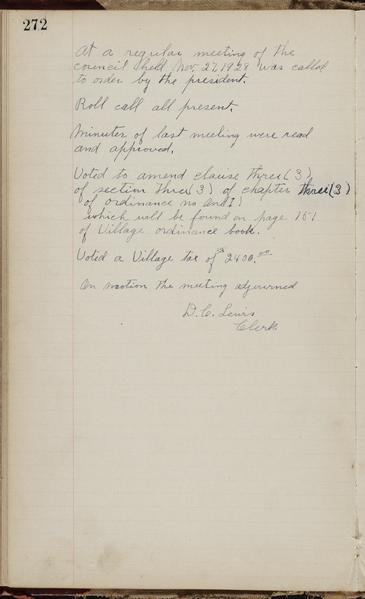 272
At a regular meeting of the
council held Nov. 27, 1928 was called
to order by the president.
Roll call all present.
Minutes of last meeting were read
and approved.
Voted to amend clause three (3)
of section three (3) of chapter three (3)
of ordinance no
which will be found on page 151
of Village ordinance book.
Voted a Village tax of $2400.00
On motion the meeting adjourned
D. C. Lewis
Clerk